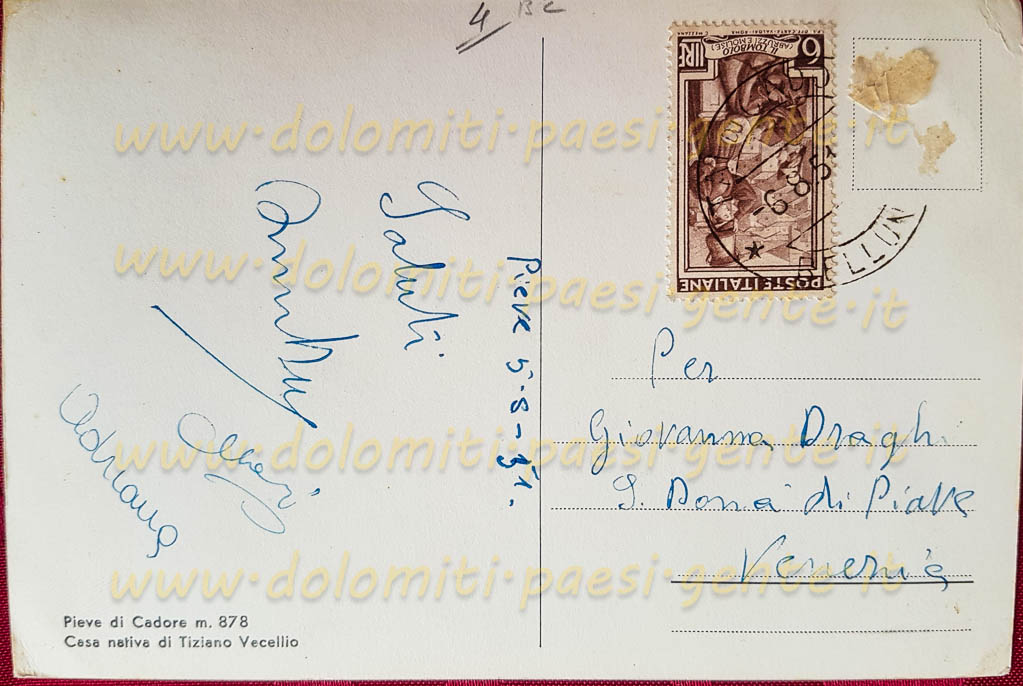 4 BC
www.dolomiti.paesi.gente.it
www.dolomiti.paesi.gente.it
www.dolomiti.paesi.gente.it
www.dolomiti.paesi.gente.it
IL TOMBOLO
(ABRUZZI E MOLISE)
LIRE 6
POSTE ITALIANE
-6.8.5
BELLUN
Pieve 5-8-51.
Saluti
Adriana
Per
Giovanna Draghi
S. Donà di Piave
Venezia
Pieve di Cadore m. 878
Casa nativa di Tiziano Vecellio